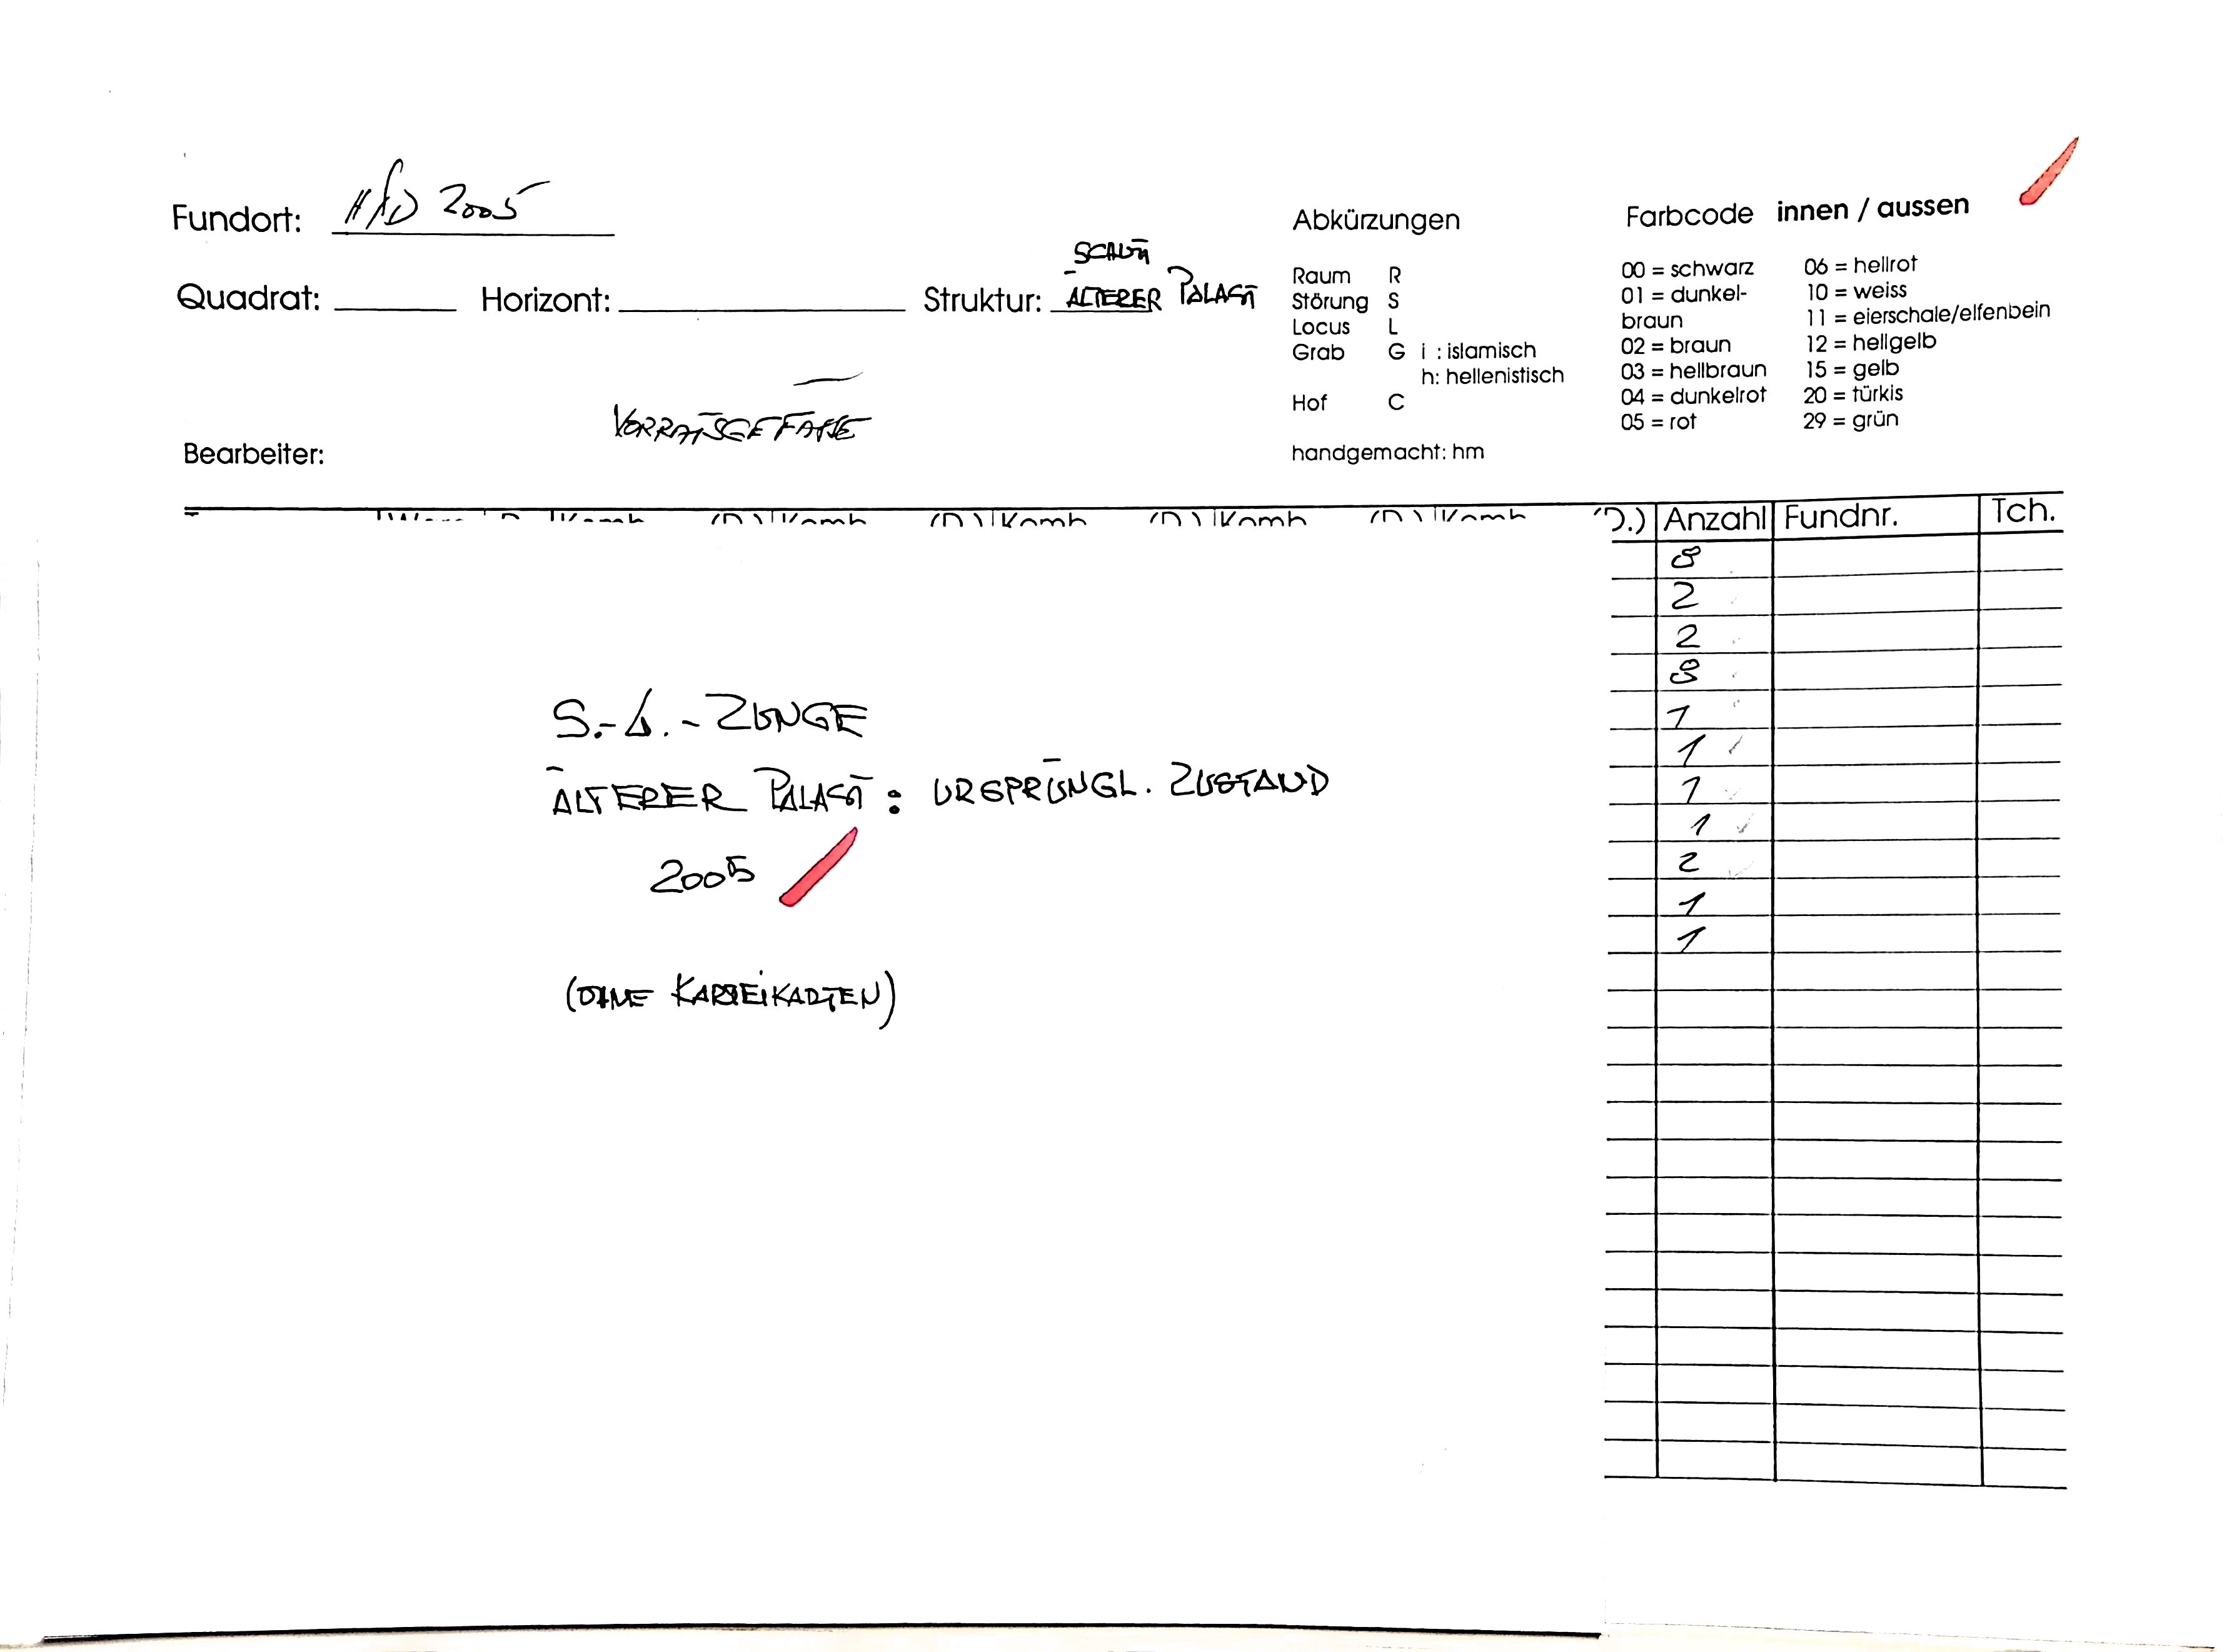 Fundort: HfD 2005
Quadrat: Horizont: Struktur: SCHUTT
ÄLTERER PALAST
VORRATSGEFÄSSE
Bearbeiter:
Abkürzungen
Raum R
Störung S
Locus L
Grab G i : islamisch
h: hellenistisch
Hof C
handgemacht: hm
Farbcode innen / aussen
00 = schwarz
01 = dunkel-
braun
02 = braun
03 = hellbraun
04 = dunkelrot
05 = rot
06 = hellrot
10 = weiss
11 = eierschale/elfenbein
12 = hellgelb
15 = gelb
20 = türkis
29 = grün
D.) Anzahl Fundnr. Tch.
8
2
2
8
1
1
1
1
2
1
1
S.-A.-ZUNGE
ÄLTERER PALAST: URSPRÜNGL. ZUSTAND
2005
(OHNE KARTEIKARTEN)